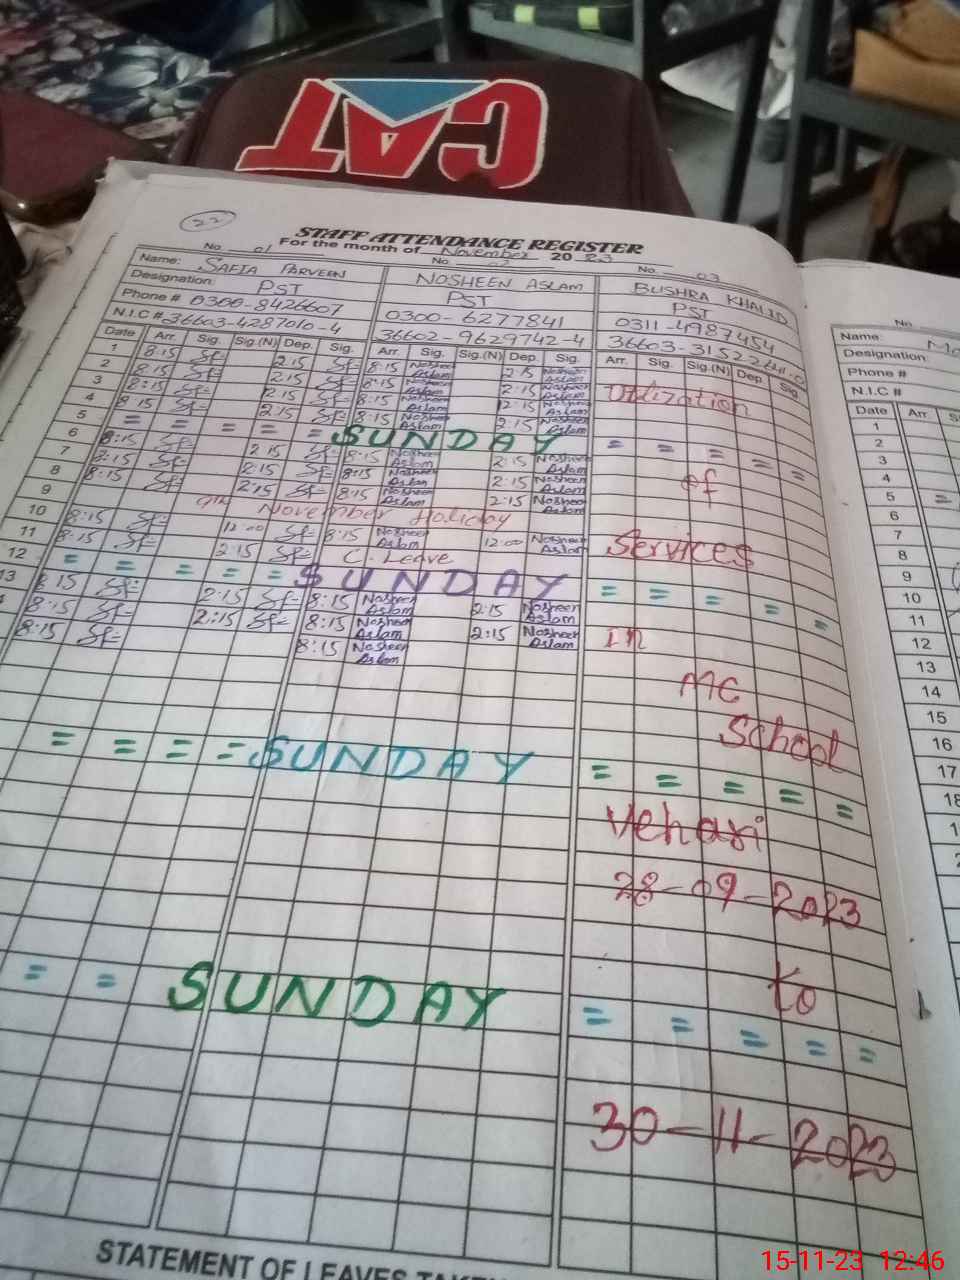 CAT
22
STAFF ATTENDANCE REGISTER
For the month of November 2023
No. 01 No. 02 No. 03
Name: SAFIA PARVEEN NOSHEEN ASLAM BUSHRA KHALID
Designation: PST PST PST
Phone # 0300-8426607 0300-6277841 0311-4987454
N.I.C # 36603-4287010-4 36602-9629742-4 36603-3152241-0
Date Arr. Sig. Sig.(N) Dep. Sig. Arr. Sig. Sig.(N) Dep. Sig. Arr. Sig. Sig.(N) Dep. Sig.
1 8:15 2:15 8:15 Nosheen Aslam 2:15 Nosheen Aslam
2 8:15 2:15 8:15 Nosheen Aslam 2:15 Nosheen Aslam Utilization
3 8:15 12:15 8:15 Nosheen Aslam 12:15 Nosheen Aslam
4 8:15 2:15 8:15 Nosheen Aslam 2:15 Nosheen Aslam
5 = = = = = SUNDAY = = = = =
6 8:15 2:15 8:15 Nosheen Aslam 2:15 Nosheen Aslam
7 8:15 2:15 8:15 Nosheen Aslam 2:15 Nosheen Aslam of
8 8:15 2:15 8:15 Nosheen Aslam 2:15 Nosheen Aslam
9 9th November Holiday
10 8:15 12:00 8:15 Nosheen Aslam 12:00 Nosheen Aslam Services
11 8:15 2:15 C. Leave
12 = = = = = SUNDAY = = = = =
13 8:15 2:15 8:15 Nosheen Aslam 2:15 Nosheen Aslam
8:15 2:15 8:15 Nosheen Aslam 2:15 Nosheen Aslam In
8:15 8:15 Nosheen Aslam
MC
School
= = = = SUNDAY = = = = =
Vehari
28-09-2023
to
= = SUNDAY = = = = =
30-11-2023
STATEMENT OF LEAVES TAKEN
No.
Name:
Designation:
Phone #
N.I.C #
Date Arr.
1
2
3
4
5 =
6
7
8
9
10
11
12
13
14
15
16
17
18
15-11-23 12:46